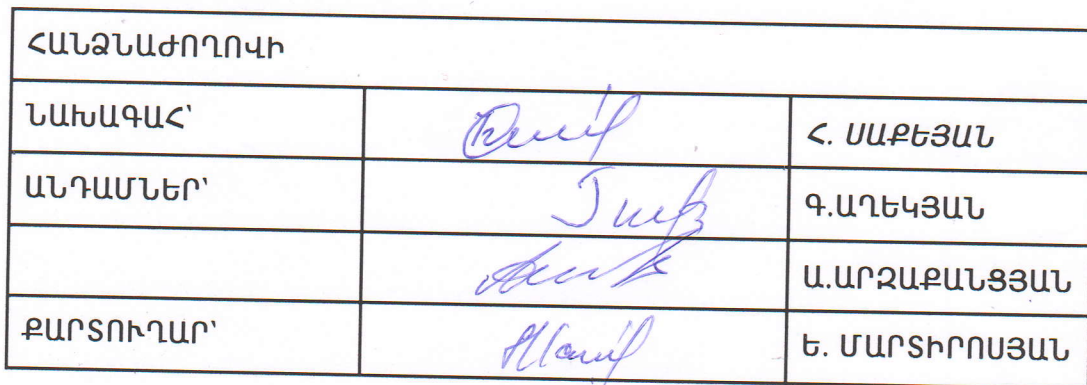 ՀԱՆՁՆԱԺՈՂՈՎԻ
ՆԱԽԱԳԱՀ՝ Հ. ՍԱՔԵՅԱՆ
ԱՆԴԱՄՆԵՐ՝ Գ.ԱՂԵԿՅԱՆ
Ա.ԱՐԶԱՔԱՆՑՅԱՆ
ՔԱՐՏՈՒՂԱՐ՝ Ե. ՄԱՐՏԻՐՈՍՅԱՆ